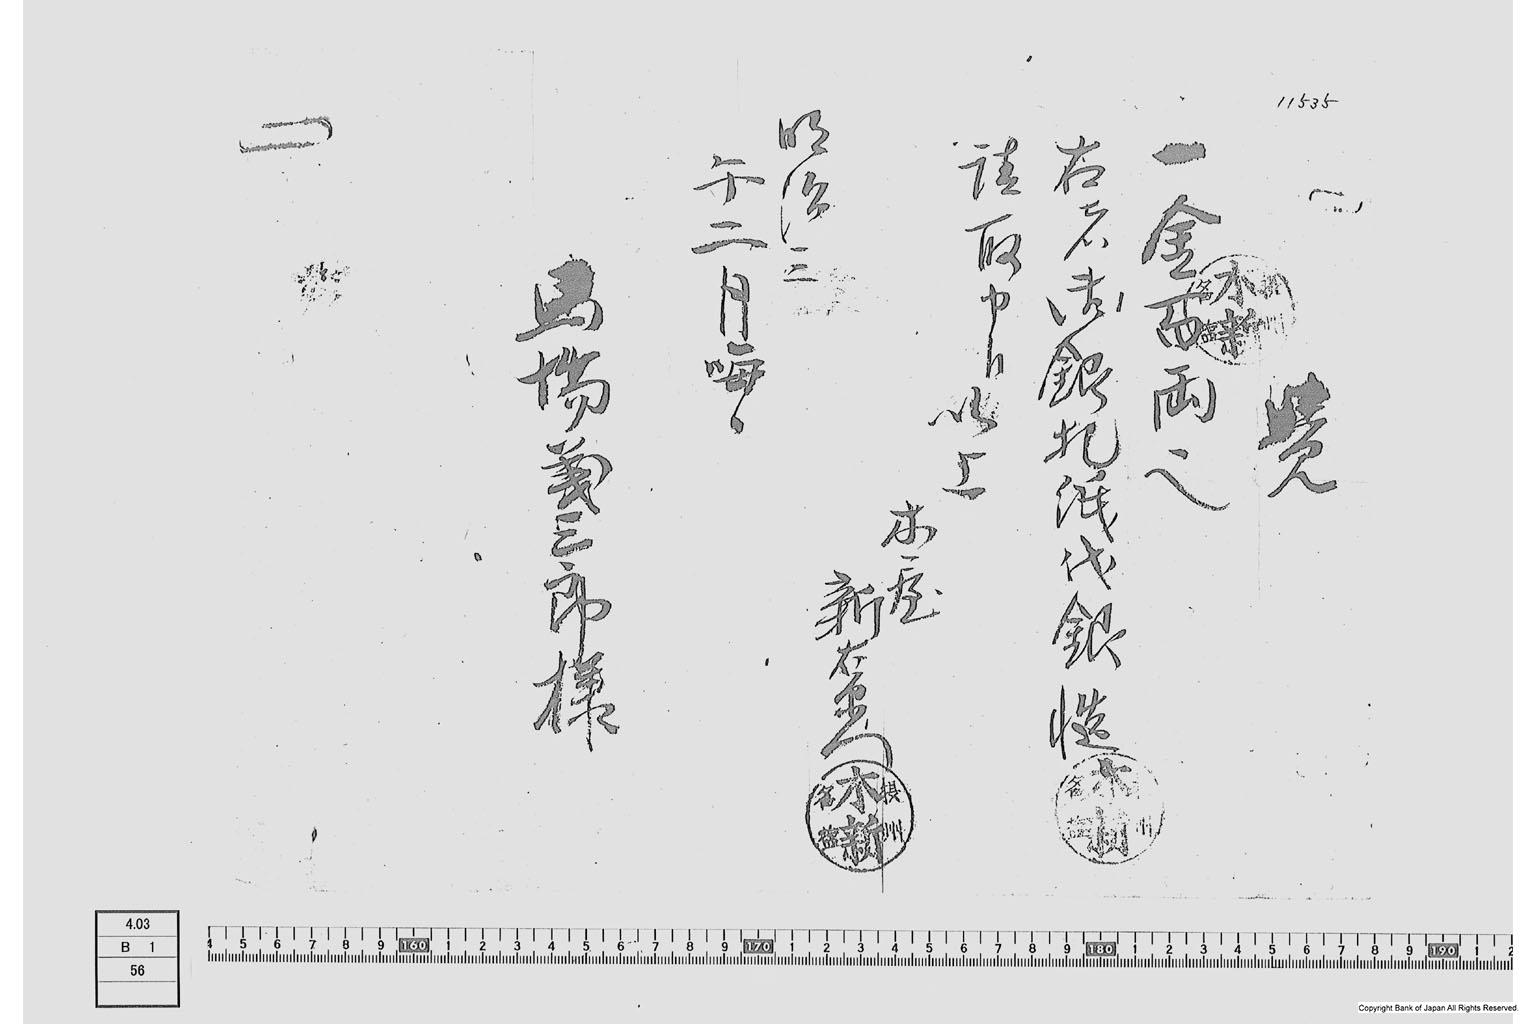 11535
覚
一金百両也
右者御銀札紙代銀慥
請取申候以上
木屋
新右衛門
明治三
午二月晦日
馬場義三郎様
木新
摂州
名塩
木新
摂州
名塩
木新
州
名塩
4.03
B 1
56
4 5 6 7 8 9 160 1 2 3 4 5 6 7 8 9 170 1 2 3 4 5 6 7 8 9 180 1 2 3 4 5 6 7 8 9 190 1 2
Copyright Bank of Japan All Rights Reserved.